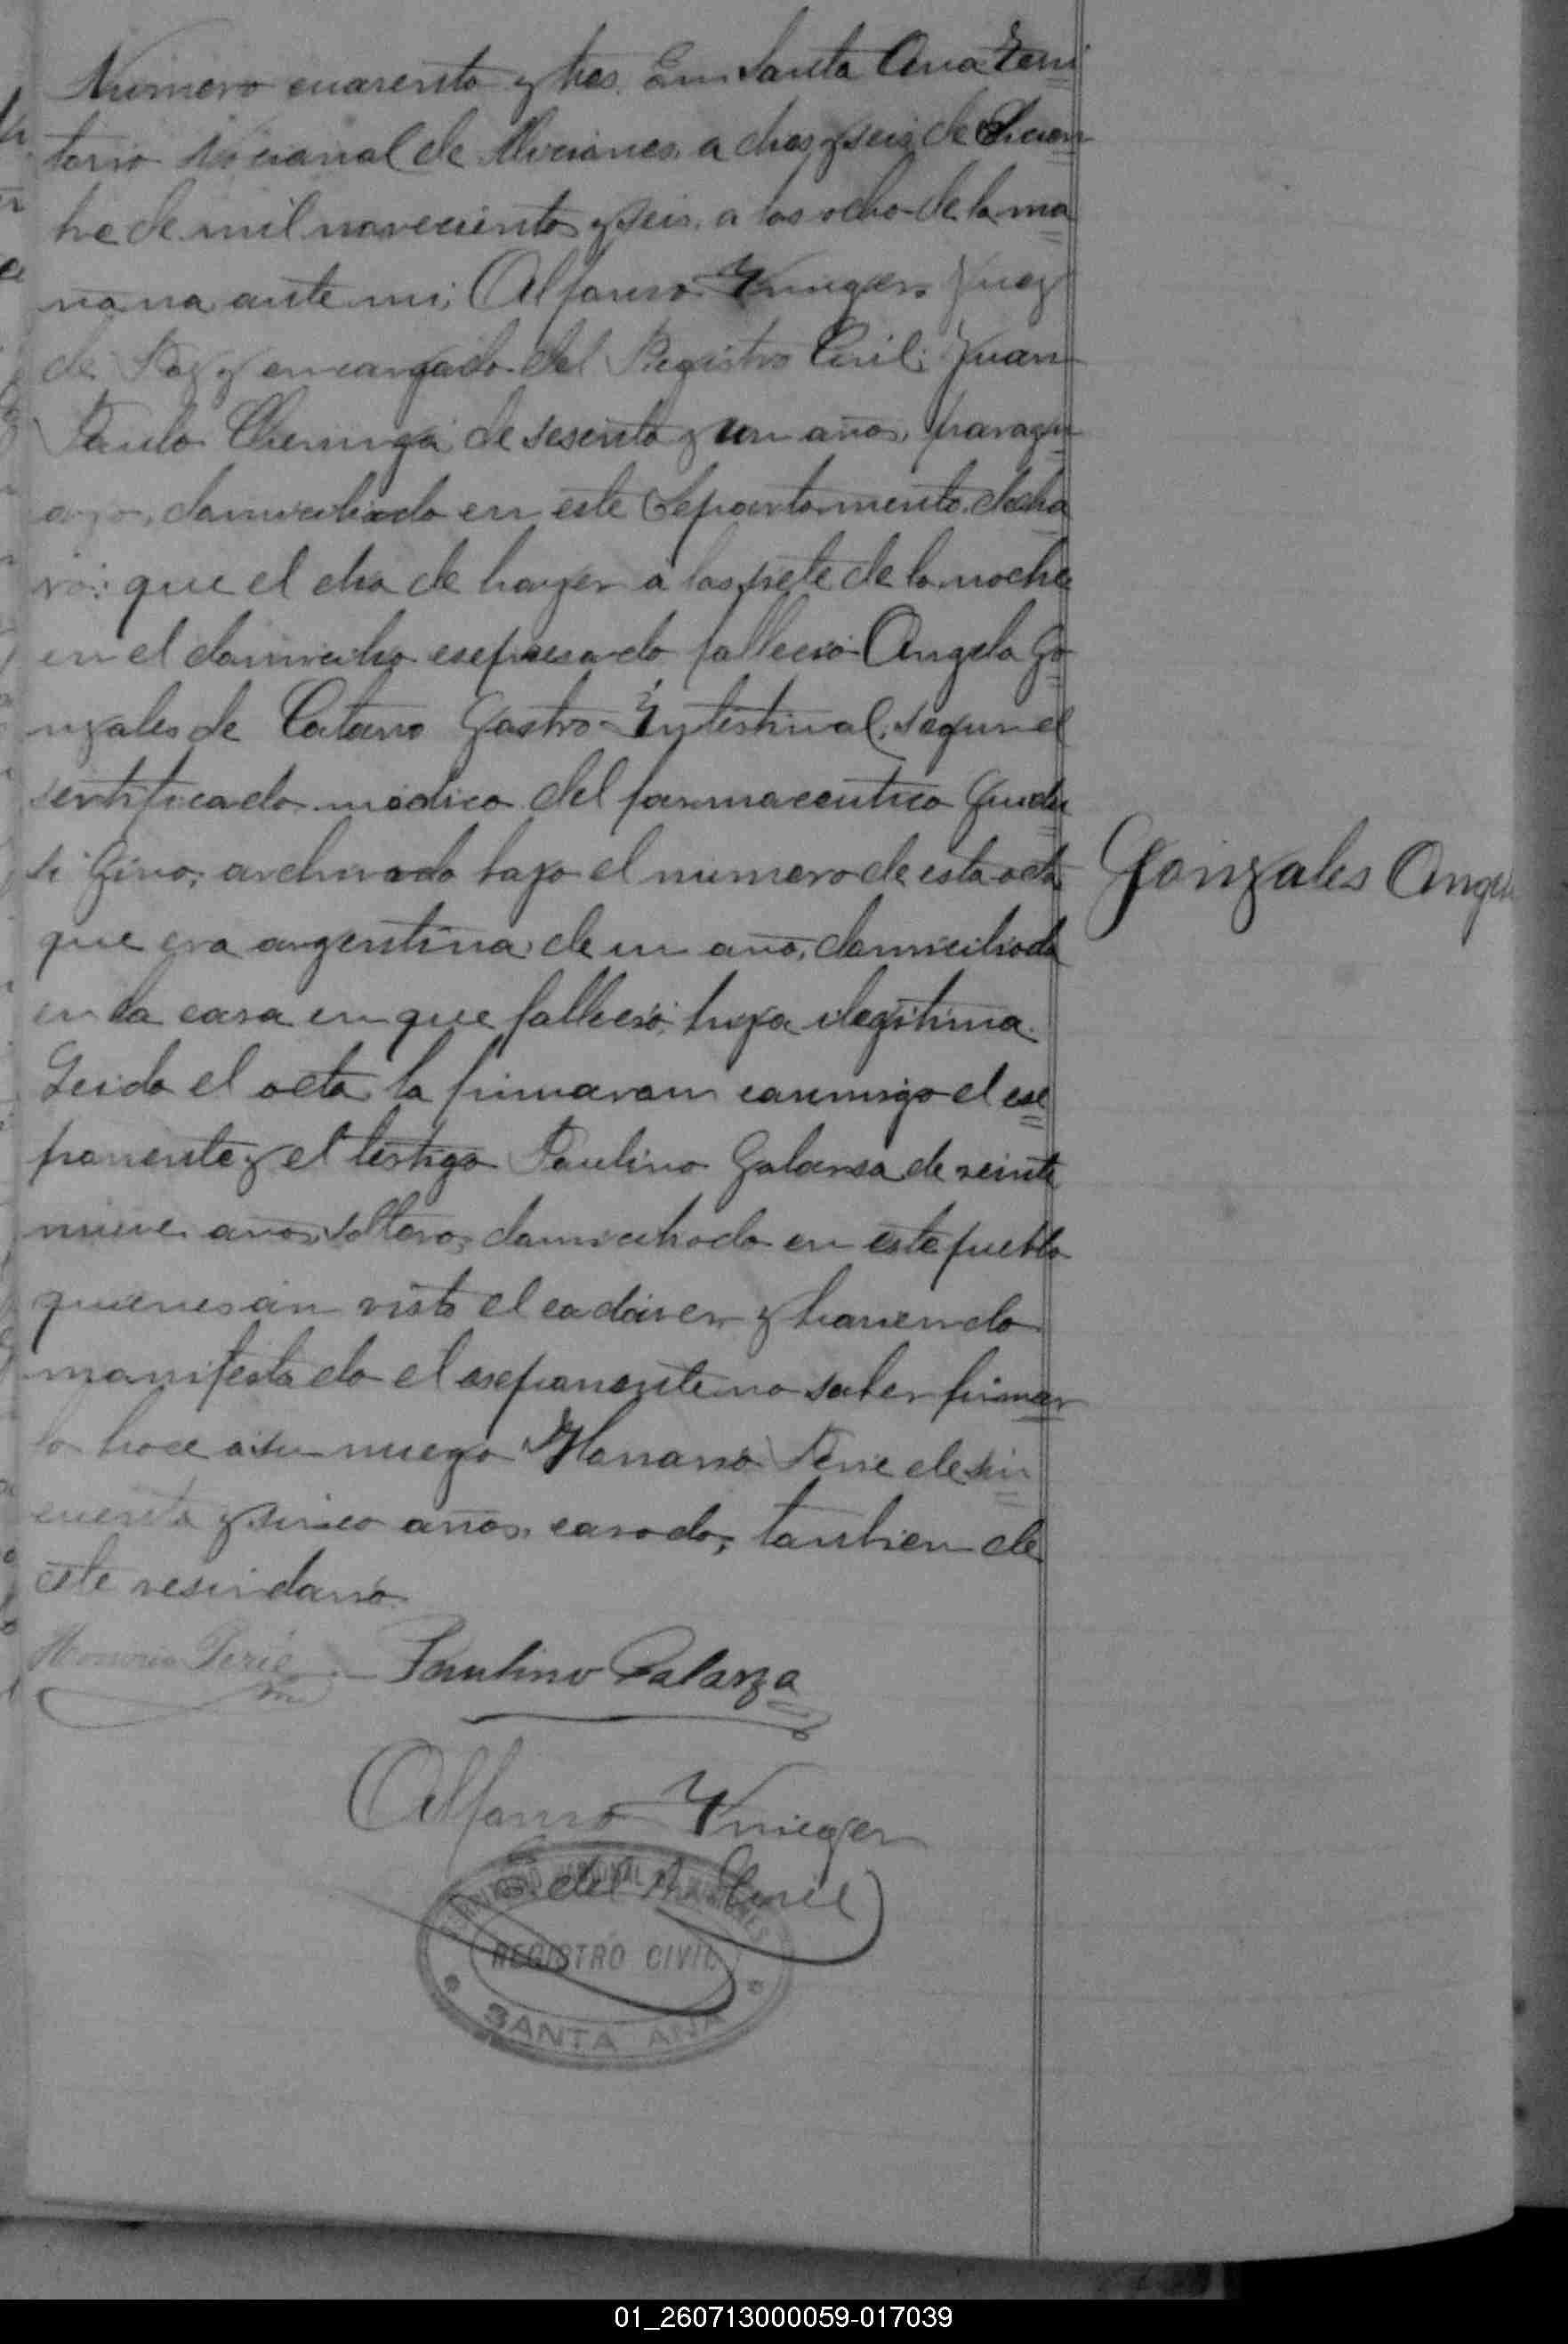 Numero cuarenta y tres. En Santa Ana Terri
torio Nacional de Misiones, a dies y seis de Diciem
bre de mil novecientos y seis, a las ocho de la ma
ñana ante mi, Alfonso Krieger Juez
de Paz y encargado del Registro Civil; Juan
Paulo de sesenta y un años, paragu
ayo, domiciliado en este Departamento, decla
ró: que el dia de hayer a las siete de la noche
en el domicilio esepresado fallecio Angela Go
nzales de Cataro Gastro-Intestinal, segun el
sertificado médico del farmaceutico
Gino, archivado bajo el numero de esta acta
que era argentina, de un año, domiciliada
en la casa en que falleció, hija ilegitima.
Leida el acta, la firmaron conmigo el ese
ponente y el testigo Paulino Galarsa de veinte
nueve años, soltero, domiciliado en este pueblo
quienes an visto el cadáver y haviendo
manifestado el eseponente no saber firmar
lo hace a su ruego Honorio Perié de sin
cuenta y sinco años, casado, tanbien de
este vesindario.
Honorio Perié Paulino Galarza
Alfonso Krieger
E. del R. Civil
TERRITORIO NACIONAL DE MISIONES
REGISTRO CIVIL
SANTA ANA
Gonzales Angela
01_260713000059-017039